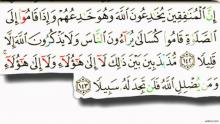 إِنَّ ٱلْمُنَٰفِقِينَ يُخَٰدِعُونَ ٱللَّهَ وَهُوَ خَٰدِعُهُمْ وَإِذَا قَامُوٓا۟ إِلَى
ٱلصَّلَوٰةِ قَامُوا۟ كُسَالَىٰ يُرَآءُونَ ٱلنَّاسَ وَلَا يَذْكُرُونَ ٱللَّهَ إِلَّا
قَلِيلًا ١٤٢ مُّذَبْذَبِينَ بَيْنَ ذَٰلِكَ لَآ إِلَىٰ هَٰٓؤُلَآءِ وَلَآ إِلَىٰ هَٰٓؤُلَآءِ
وَمَن يُضْلِلِ ٱللَّهُ فَلَن تَجِدَ لَهُۥ سَبِيلًا ١٤٣